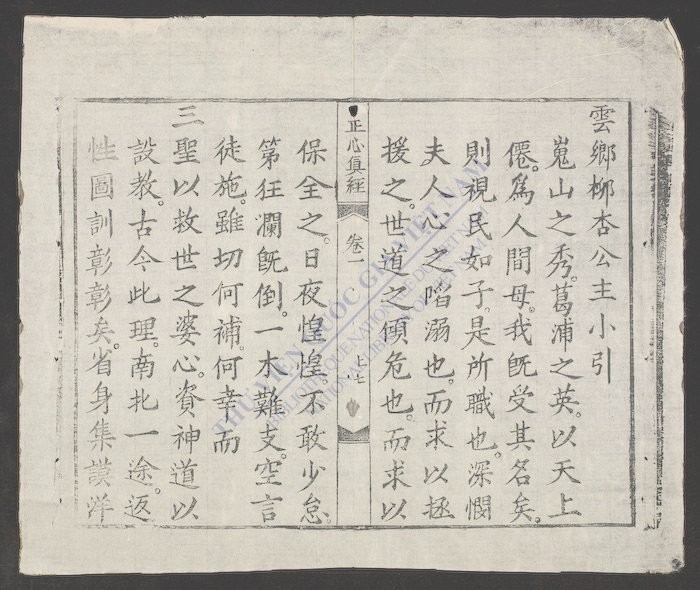 雲鄉柳杏公主小引
嵬山之秀。葛浦之英。以天上
僊。爲人間母。我旣受其名矣。
則視民如子。是所職也。深憫
夫人心之陷溺也。而求以拯
援之。世道之傾危也。而求以
正心真經 卷二 上七
保全之。日夜惶惶。不敢少怠。
第狂瀾旣倒。一木難支。空言
徒施。雖切何補。何幸而
三聖以救世之婆心。資神道以
設教。古今此理。南北一途。返
性圖訓彰彰矣。省身集謨洋
THƯ VIỆN QUỐC GIA VIỆT NAM
BIBLIOTHEQUE NATIONALE DU VIETNAM
NATIONAL LIBRARY OF VIETNAM